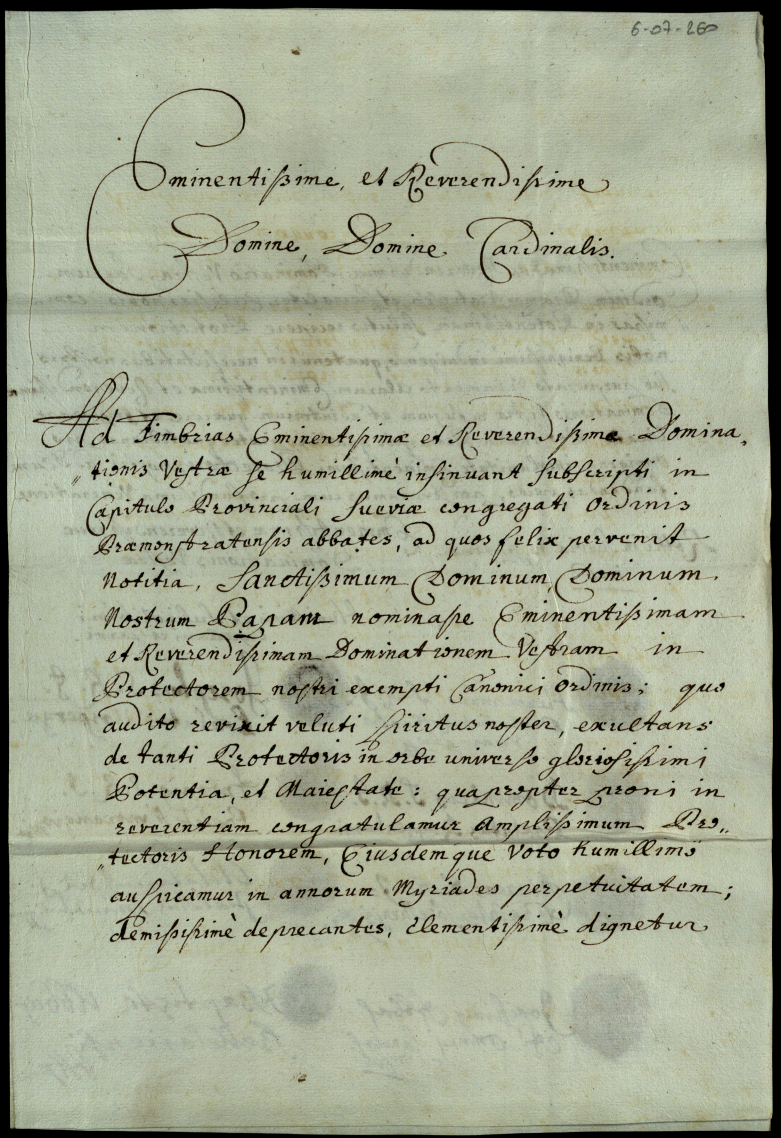 6-07-260
Eminentissime, et Reverendissime
Domine, Domine Cardinalis.
Ad Fimbrias Eminentissimæ et Reverendissimæ Domina„
„tionis Vestræ se humillimè insinuant subscripti in
Capitulo Provinciali Sueviæ congregati ordinis
Præmonstratensis abbates, ad quos felix pervenit
Notitia, Sanctissimum Dominum Dominum
Nostrum Papam nominasse Eminentissimam
et Reverendissimam Dominationem Vestram in
Protectorem nostri exempti Canonici ordinis; quo
audito revixit veluti spiritus noster, exultans
de tanti Protectoris in orbe universo gloriosissimi
Potentia, et Maiestate: quapropter proni in
reverentiam congratulamur Amplissimum Pro„
„tectoris Honorem, Eiusdemque voto humillimo
auspicamur in annorum Myriades perpetuitatem;
demississimè deprecantes, clementissimè dignetur